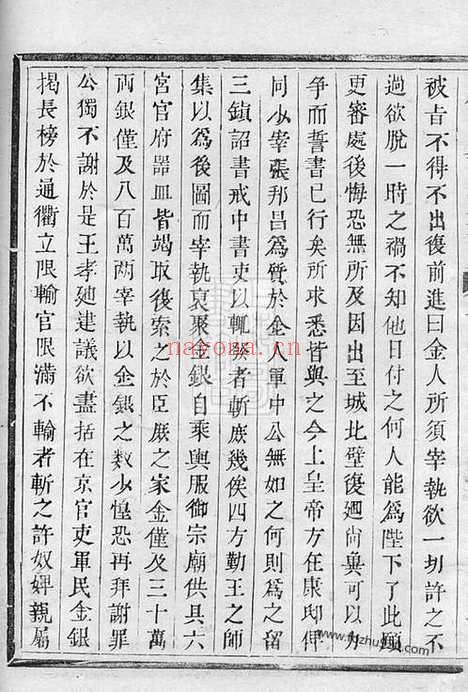 被旨不得不出復前進曰金人所須宰執欲一切許之不
過欲脫一時之禍不知他日付之何人能爲陛下了此願
更審處後悔恐無所及因出至城北壁復廻尙冀可以力
爭而誓書已行矣所求悉皆與之今上皇帝方在康邸俾
同少宰張邦昌爲質於金人軍中公無如之何則爲之留
三鎮詔書戒中書吏以輒發者斬庶幾俟四方勤王之師
集以爲後圖而宰執裒聚金銀自乘輿服御宗廟供具六
宮官府器皿皆竭取復索之於臣庶之家金僅及三十萬
兩銀僅及八百萬兩宰執以金銀之數少惶恐再拜謝罪
公獨不謝於是王孝廸建議欲盡括在京官吏軍民金銀
揭長榜於通衢立限輸官限滿不輸者斬之許奴婢親屬
nayona.cn